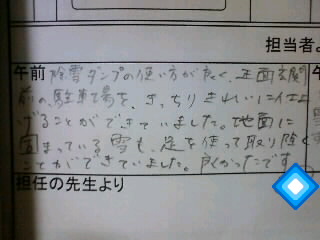 担当者
午前 除雪ダンプの使い方が良く、正面玄関
前の、駐車場を、きっちりきれいに仕上
げることができていました。地面に
固まっている雪も、足を使って取り除く
ことができていました。良かったです
担任の先生より